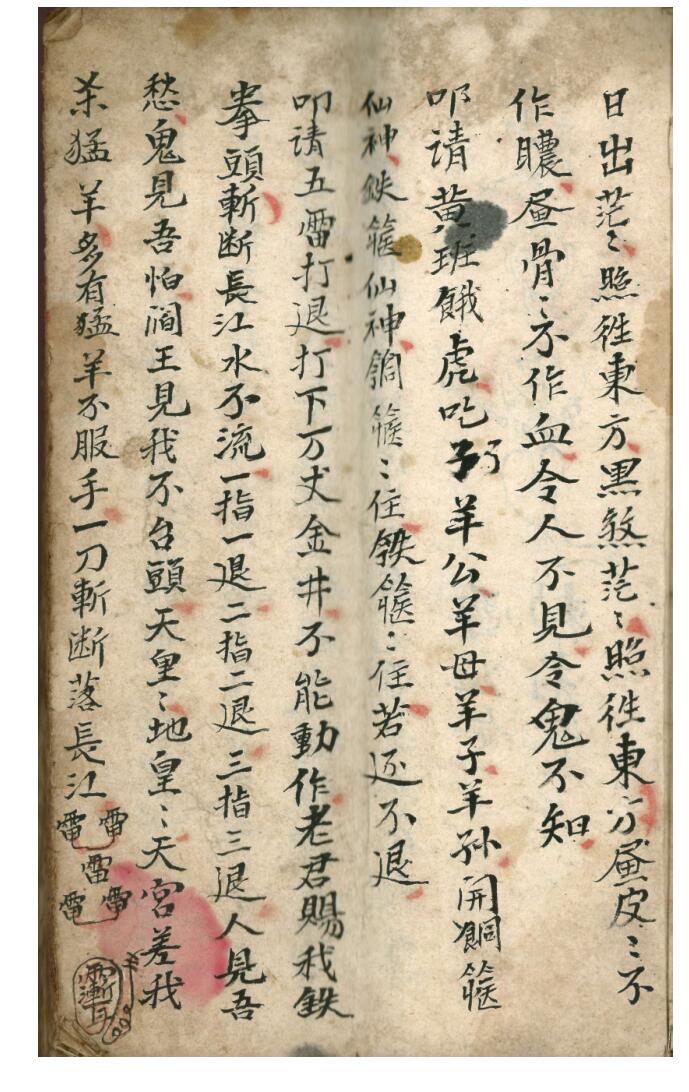 日出茫〻照徃東方黑煞茫〻照徃東方昼皮〻不
作膿昼骨〻不作血令人不見令鬼不知
叩请黄班餓虎吃羊公羊母羊子羊孙開銅
仙神鉄仙神銅〻住鉄〻住若还不退
叩请五雷打退打下万丈金井不能動作老君賜我鉄
拳頭斬断長江水不流一指一退二指二退三指三退人見吾
愁鬼見吾怕阎王見我不台頭天皇〻地皇〻天宮差我
杀猛羊多有猛羊不服手一刀斬断落長江
雷雷
雷
雷雷